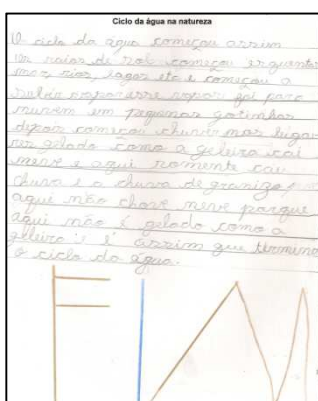 Ciclo da água na natureza
O ciclo da água começou assim
os raios de sol começou esquenta
mar, rios, lagos etc e começou a
subir vapor esse vapor foi para
nuvem em pequenas gotinhas
depois começou chuvir mas lugar
res gelado como a geleira cai
neve e aqui somente cau
chuva e a chuva de granizo
aqui não chove neve porque
aqui não é gelado como a
geleira e é assim que termina
o ciclo da água.
FIM